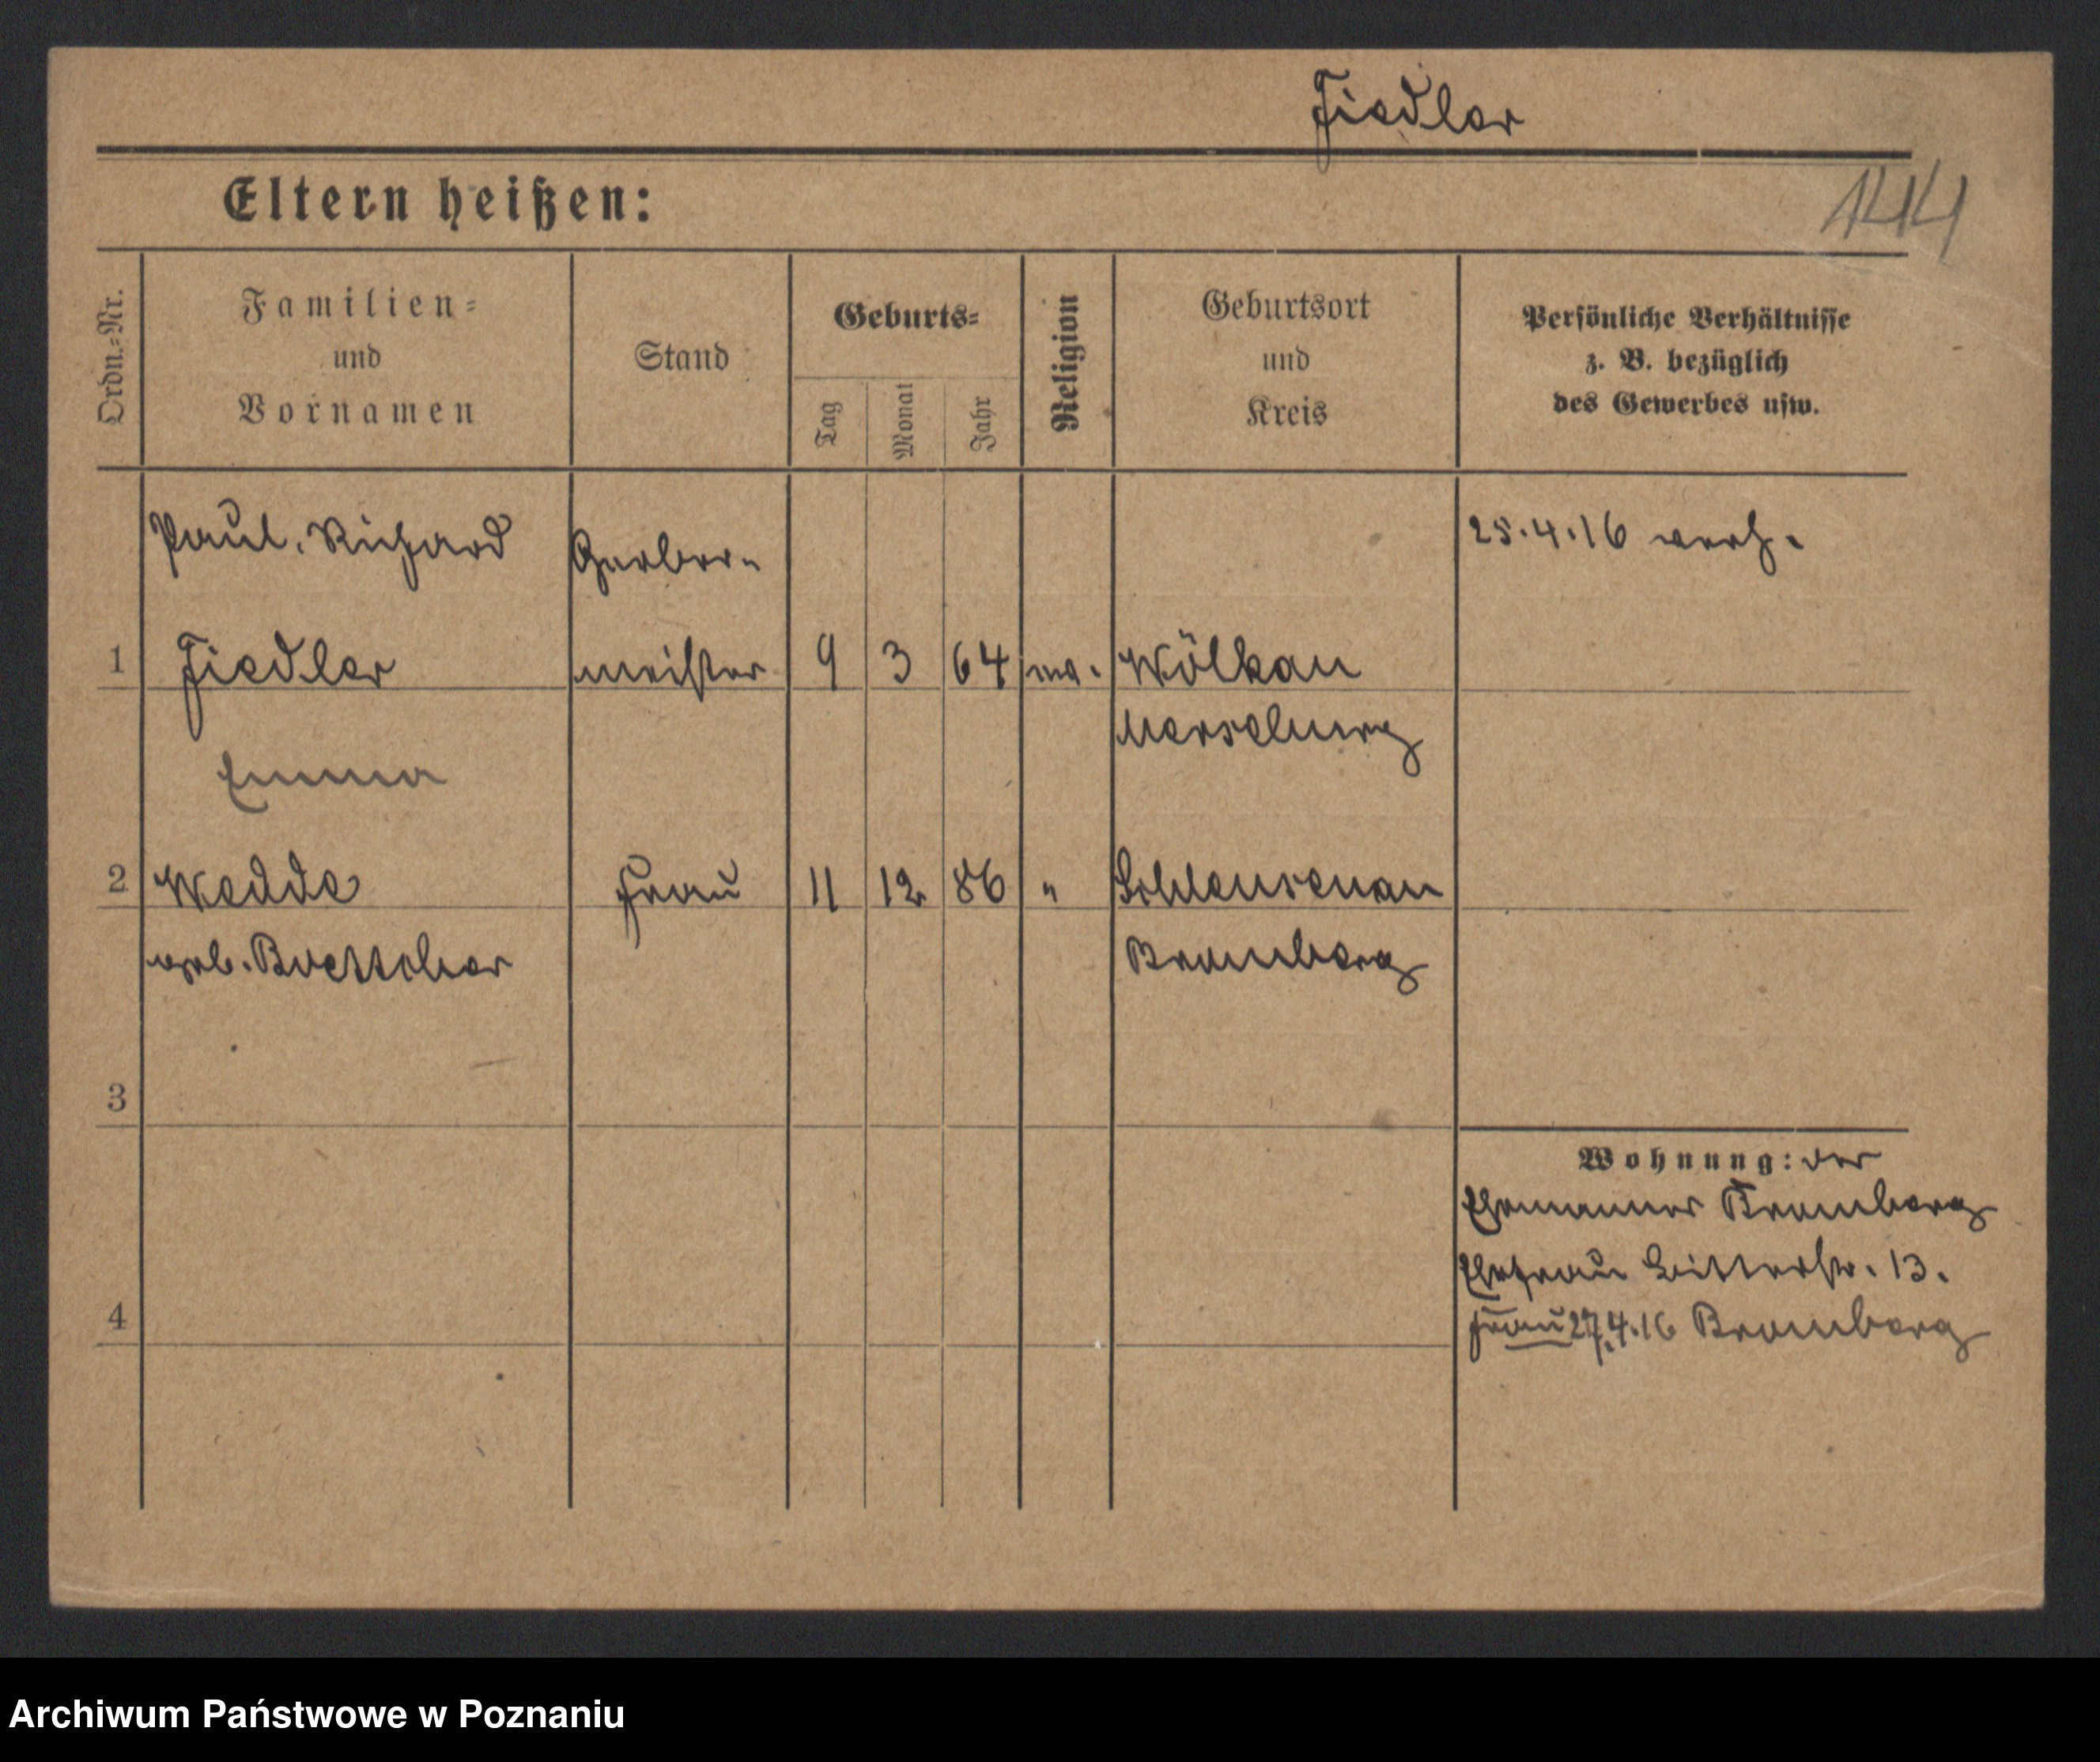 Fiedler
Eltern heißen:
144
Ordn.-Nr.
Familien-
und
Vornamen
Stand
Geburts-
Tag
Monat
Jahr
Religion
Geburtsort
und
Kreis
Persönliche Verhältnisse
z. B. bezüglich
des Gewerbes usw.
Paul, Richard
Gerber-
25.4.16 verh.
1 Fiedler meister 9 3 64 ev. Wölkau
Merseburg
Emma
2 Wedde Frau 11 12 86 " Schleusenau
geb. Boettcher
Bromberg
3
Wohnung: der
Ehemanns Bromberg
Ehefrau 13.
4
Frau 27.4.16 Bromberg
Archiwum Państwowe w Poznaniu